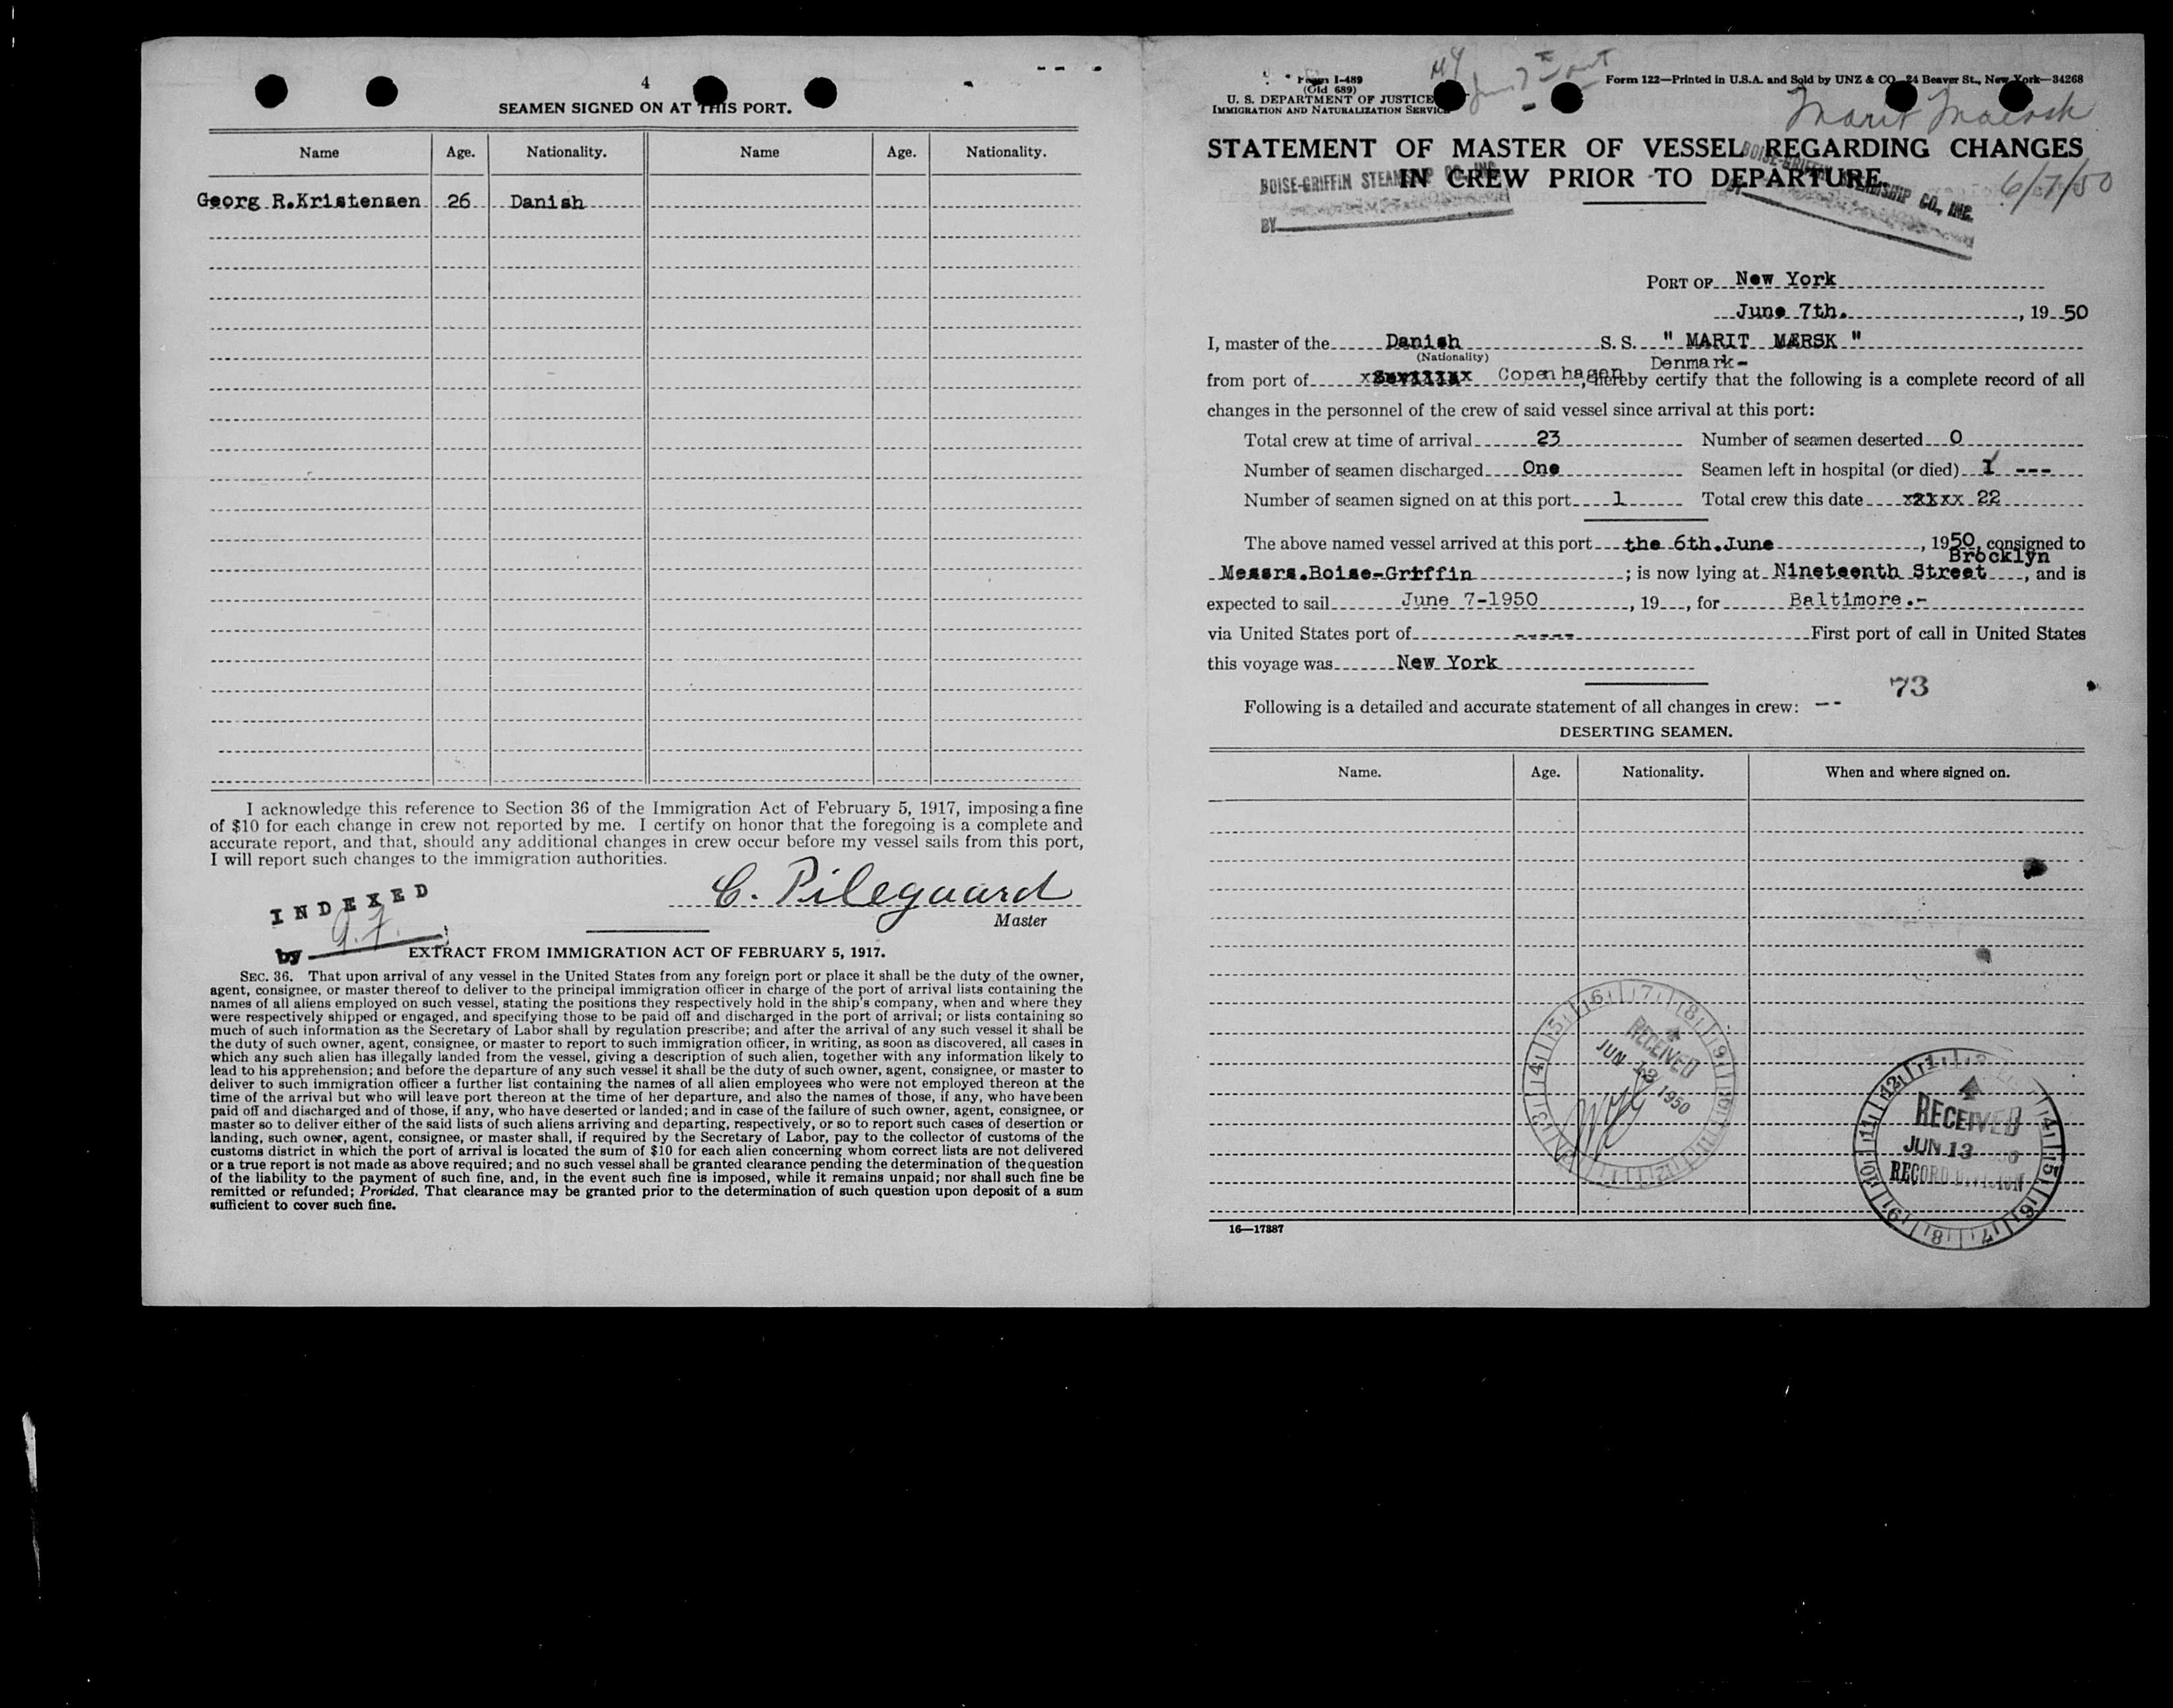 4
SEAMEN SIGNED ON AT THIS PORT.
Name Age. Nationality. Name Age. Nationality.
Georg R.Kristensen 26 Danish
I acknowledge this reference to Section 36 of the Immigration Act of February 5, 1917, imposing a fine
of $10 for each change in crew not reported by me. I certify on honor that the foregoing is a complete and
accurate report, and that, should any additional changes in crew occur before my vessel sails from this port,
I will report such changes to the immigration authorities.
INDEXED
C. Pilegaard
Master
by
EXTRACT FROM IMMIGRATION ACT OF FEBRUARY 5, 1917.
SEC. 36. That upon arrival of any vessel in the United States from any foreign port or place it shall be the duty of the owner,
agent, consignee, or master thereof to deliver to the principal immigration officer in charge of the port of arrival lists containing the
names of all aliens employed on such vessel, stating the positions they respectively hold in the ship's company, when and where they
were respectively shipped or engaged, and specifying those to be paid off and discharged in the port of arrival; or lists containing so
much of such information as the Secretary of Labor shall by regulation prescribe; and after the arrival of any such vessel it shall be
the duty of such owner, agent, consignee, or master to report to such immigration officer, in writing, as soon as discovered, all cases in
which any such alien has illegally landed from the vessel, giving a description of such alien, together with any information likely to
lead to his apprehension; and before the departure of any such vessel it shall be the duty of such owner, agent, consignee, or master to
deliver to such immigration officer a further list containing the names of all alien employees who were not employed thereon at the
time of the arrival but who will leave port thereon at the time of her departure, and also the names of those, if any, who have been
paid off and discharged and of those, if any, who have deserted or landed; and in case of the failure of such owner, agent, consignee, or
master so to deliver either of the said lists of such aliens arriving and departing, respectively, or so to report such cases of desertion or
landing, such owner, agent, consignee, or master shall, if required by the Secretary of Labor, pay to the collector of customs of the
customs district in which the port of arrival is located the sum of $10 for each alien concerning whom correct lists are not delivered
or a true report is not made as above required; and no such vessel shall be granted clearance pending the determination of the question
of the liability to the payment of such fine, and, in the event such fine is imposed, while it remains unpaid; nor shall such fine be
remitted or refunded; Provided, That clearance may be granted prior to the determination of such question upon deposit of a sum
sufficient to cover such fine.
Form I-489
(Old 689)
U. S. DEPARTMENT OF JUSTICE
IMMIGRATION AND NATURALIZATION SERVICE
Form 122—Printed in U.S.A. and Sold by UNZ & CO., 24 Beaver St., New York—34268
Marit Maersk
STATEMENT OF MASTER OF VESSEL REGARDING CHANGES
IN CREW PRIOR TO DEPARTURE
BOISE-GRIFFIN STEAMSHIP CO., INC.
BY
BOISE-GRIFFIN STEAMSHIP CO., INC.
6/7/50
PORT OF New York
June 7th. , 19 50
I, master of the Danish S. S. " MARIT MÆRSK "
(Nationality)
from port of Copenhagen Denmark- , hereby certify that the following is a complete record of all
changes in the personnel of the crew of said vessel since arrival at this port:
Total crew at time of arrival 23 Number of seamen deserted 0
Number of seamen discharged One Seamen left in hospital (or died) 1 ---
Number of seamen signed on at this port 1 Total crew this date 22
The above named vessel arrived at this port the 6th.June , 1950, consigned to
Messrs.Boise-Griffin ; is now lying at Nineteenth Street Brocklyn , and is
expected to sail June 7-1950 , 19 , for Baltimore.-
via United States port of ----- First port of call in United States
this voyage was New York
73
Following is a detailed and accurate statement of all changes in crew: --
DESERTING SEAMEN.
Name. Age. Nationality. When and where signed on.
RECEIVED
JUN 13 1950
RECEIVED
JUN 13
RECORD DIVISION
16—17887